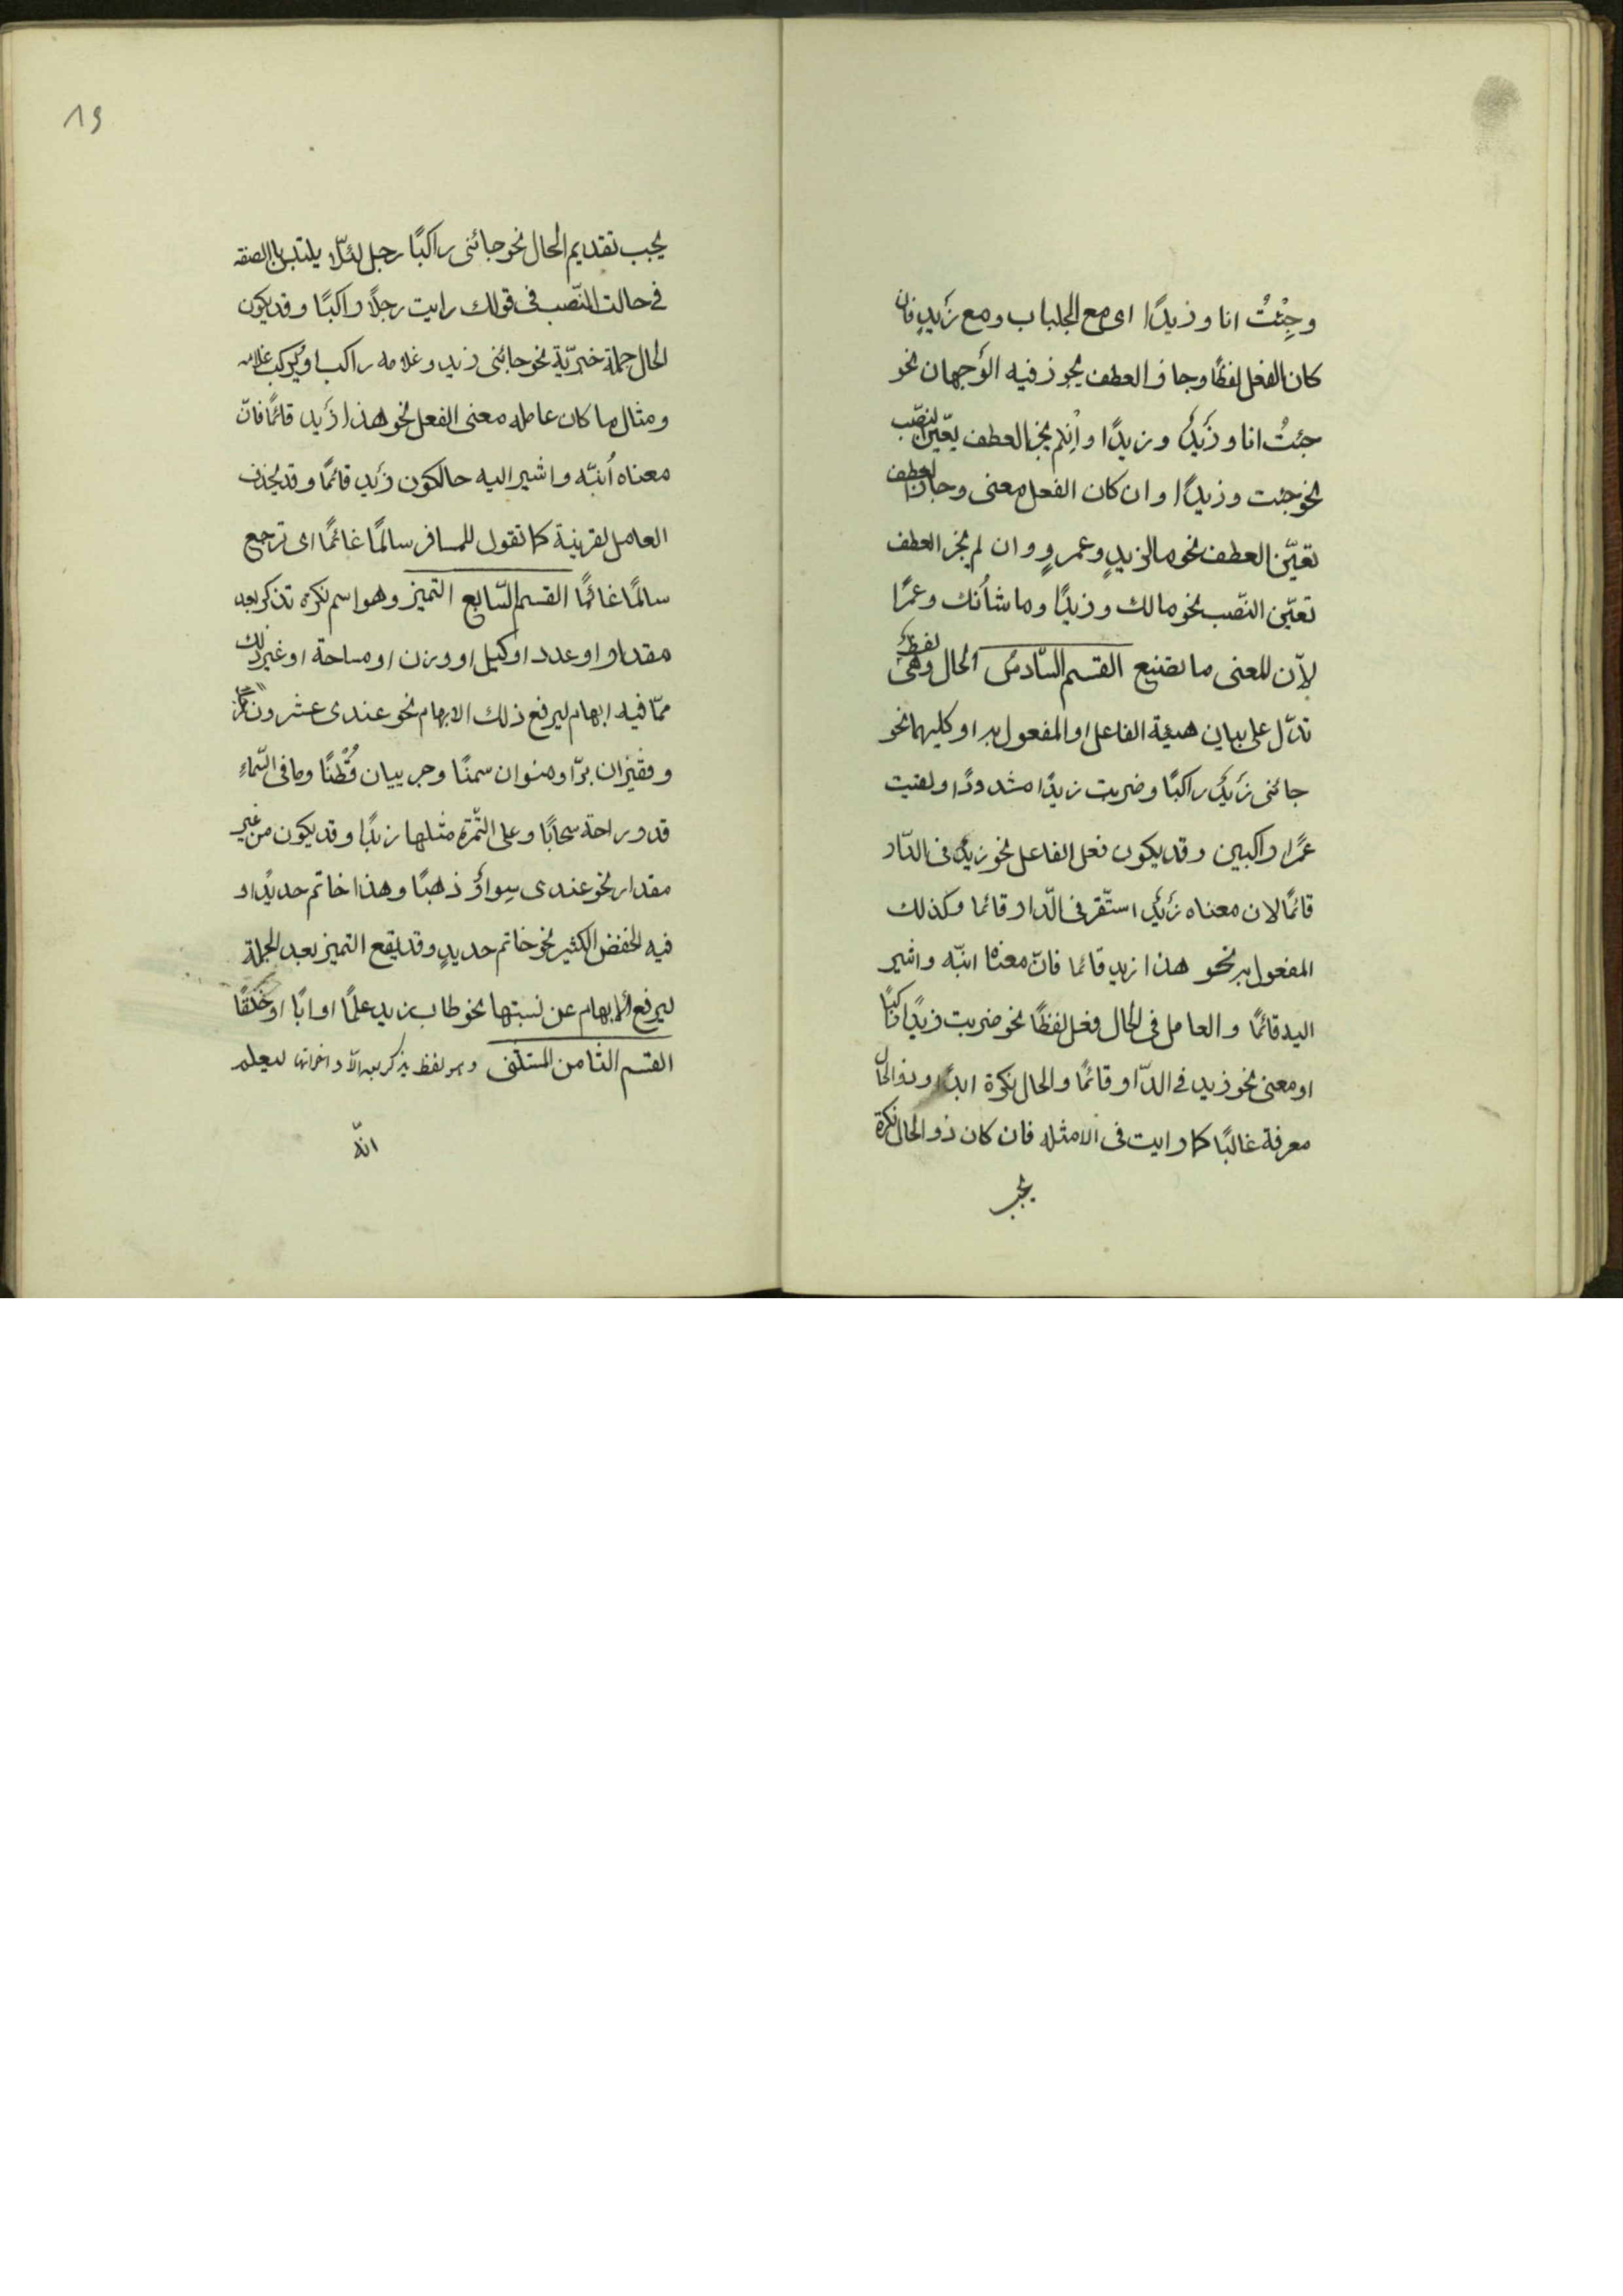 وجِئْتُ انا وزيدًا اى مع الجلباب ومع زَيدٍ فان
كان الفعل لفظًا وجاز العطف يجوز فيه الوَجهان نحو
جئتُ انا وزَيدٌ وزيدًا واِنْ لم يجز العطف يتعيّن النصّب
نحو جئت وزيدًا وان كان الفعل معنى وجاز العطف
تعيّن العطف نحو ما لزيدٍ وعمرٍو وان لم يجز العطف
تعيّن النّصب نحو مالك وزيدًا وما شأنك وعمرًا
لأنّ المعنى ما تصنع القسم السّادسُ الحال وهى لفظٌ
تدّل على بيان هيئة الفاعل او المفعول به او كليهما نحو
جائنى زَيدٌ راكبًا وضربت زيدًا مشدودًا ولقيت
عمرًا راكبين وقد يكون فعل الفاعل نحو زيدٌ فى الدّار
قائمًا لان معناه زَيدٌ استّقر فى الدّار قائما وكذلك
المفعول به نحو هذا زيد قائما فانّ معناه انبّه واشير
اليه قائمًا والعامل فى الحال فعل لفظًا نحو ضربت زيدًا راكبًا
او معنى نحو زيد فى الدّار قائمًا والحال نكرة ابدًا وذو الحال
معرفة غالبًا كما رايت فى الامثله فان كان ذو الحال نكرة
يجب
١٩
يجب تقديم الحال نحو جائنى راكبًا رجل لئلّا يلتبس باالصفه
فى حالت النّصب فى قولك رايت رجلًا راكبًا وقد يكون
الحال جملة خبريّة نحو جائنى زيد وغلامه راكب او يركب غلامه
ومثال ما كان عامله معنى الفعل نحو هذا زَيد قائمًا فانّ
معناه اُنبّه واشير اليه حالكون زَيد قائمًا وقد يحذف
العامل لقرينة كما تقول للمسافر سالمًا غانمًا اى ترجع
سالمًا غانمًا القسم السّابع التميز وهو اسم نكره تذكر بعد
مقدار او عدد او كيل او وزن او مساحة او غير ذلك
ممّا فيه ابهام ليرفع ذلك الابهام نحو عندى عشرون
وقفيزان برّا ومنوان سمنًا وجريبان قُطْنًا وما فى السّماءِ
قدر راحة سحابًا وعلى التّمرة مثلها زبدًا وقد يكون من غير
مقدار نحو عندى سوارٌ ذهبًا وهذا خاتم حديدًا و
فيه الخفض الكثير نحو خاتم حديدٍ وقد يقع التميز بعد الجملة
ليرفع الابهام عن نسبتها نحو طاب زيد علمًا او ابًا او خُلْقًا
القسم الثامن المستثنى وهو لفظ يذكر بعد الّا واخواتها ليعلم
انّه